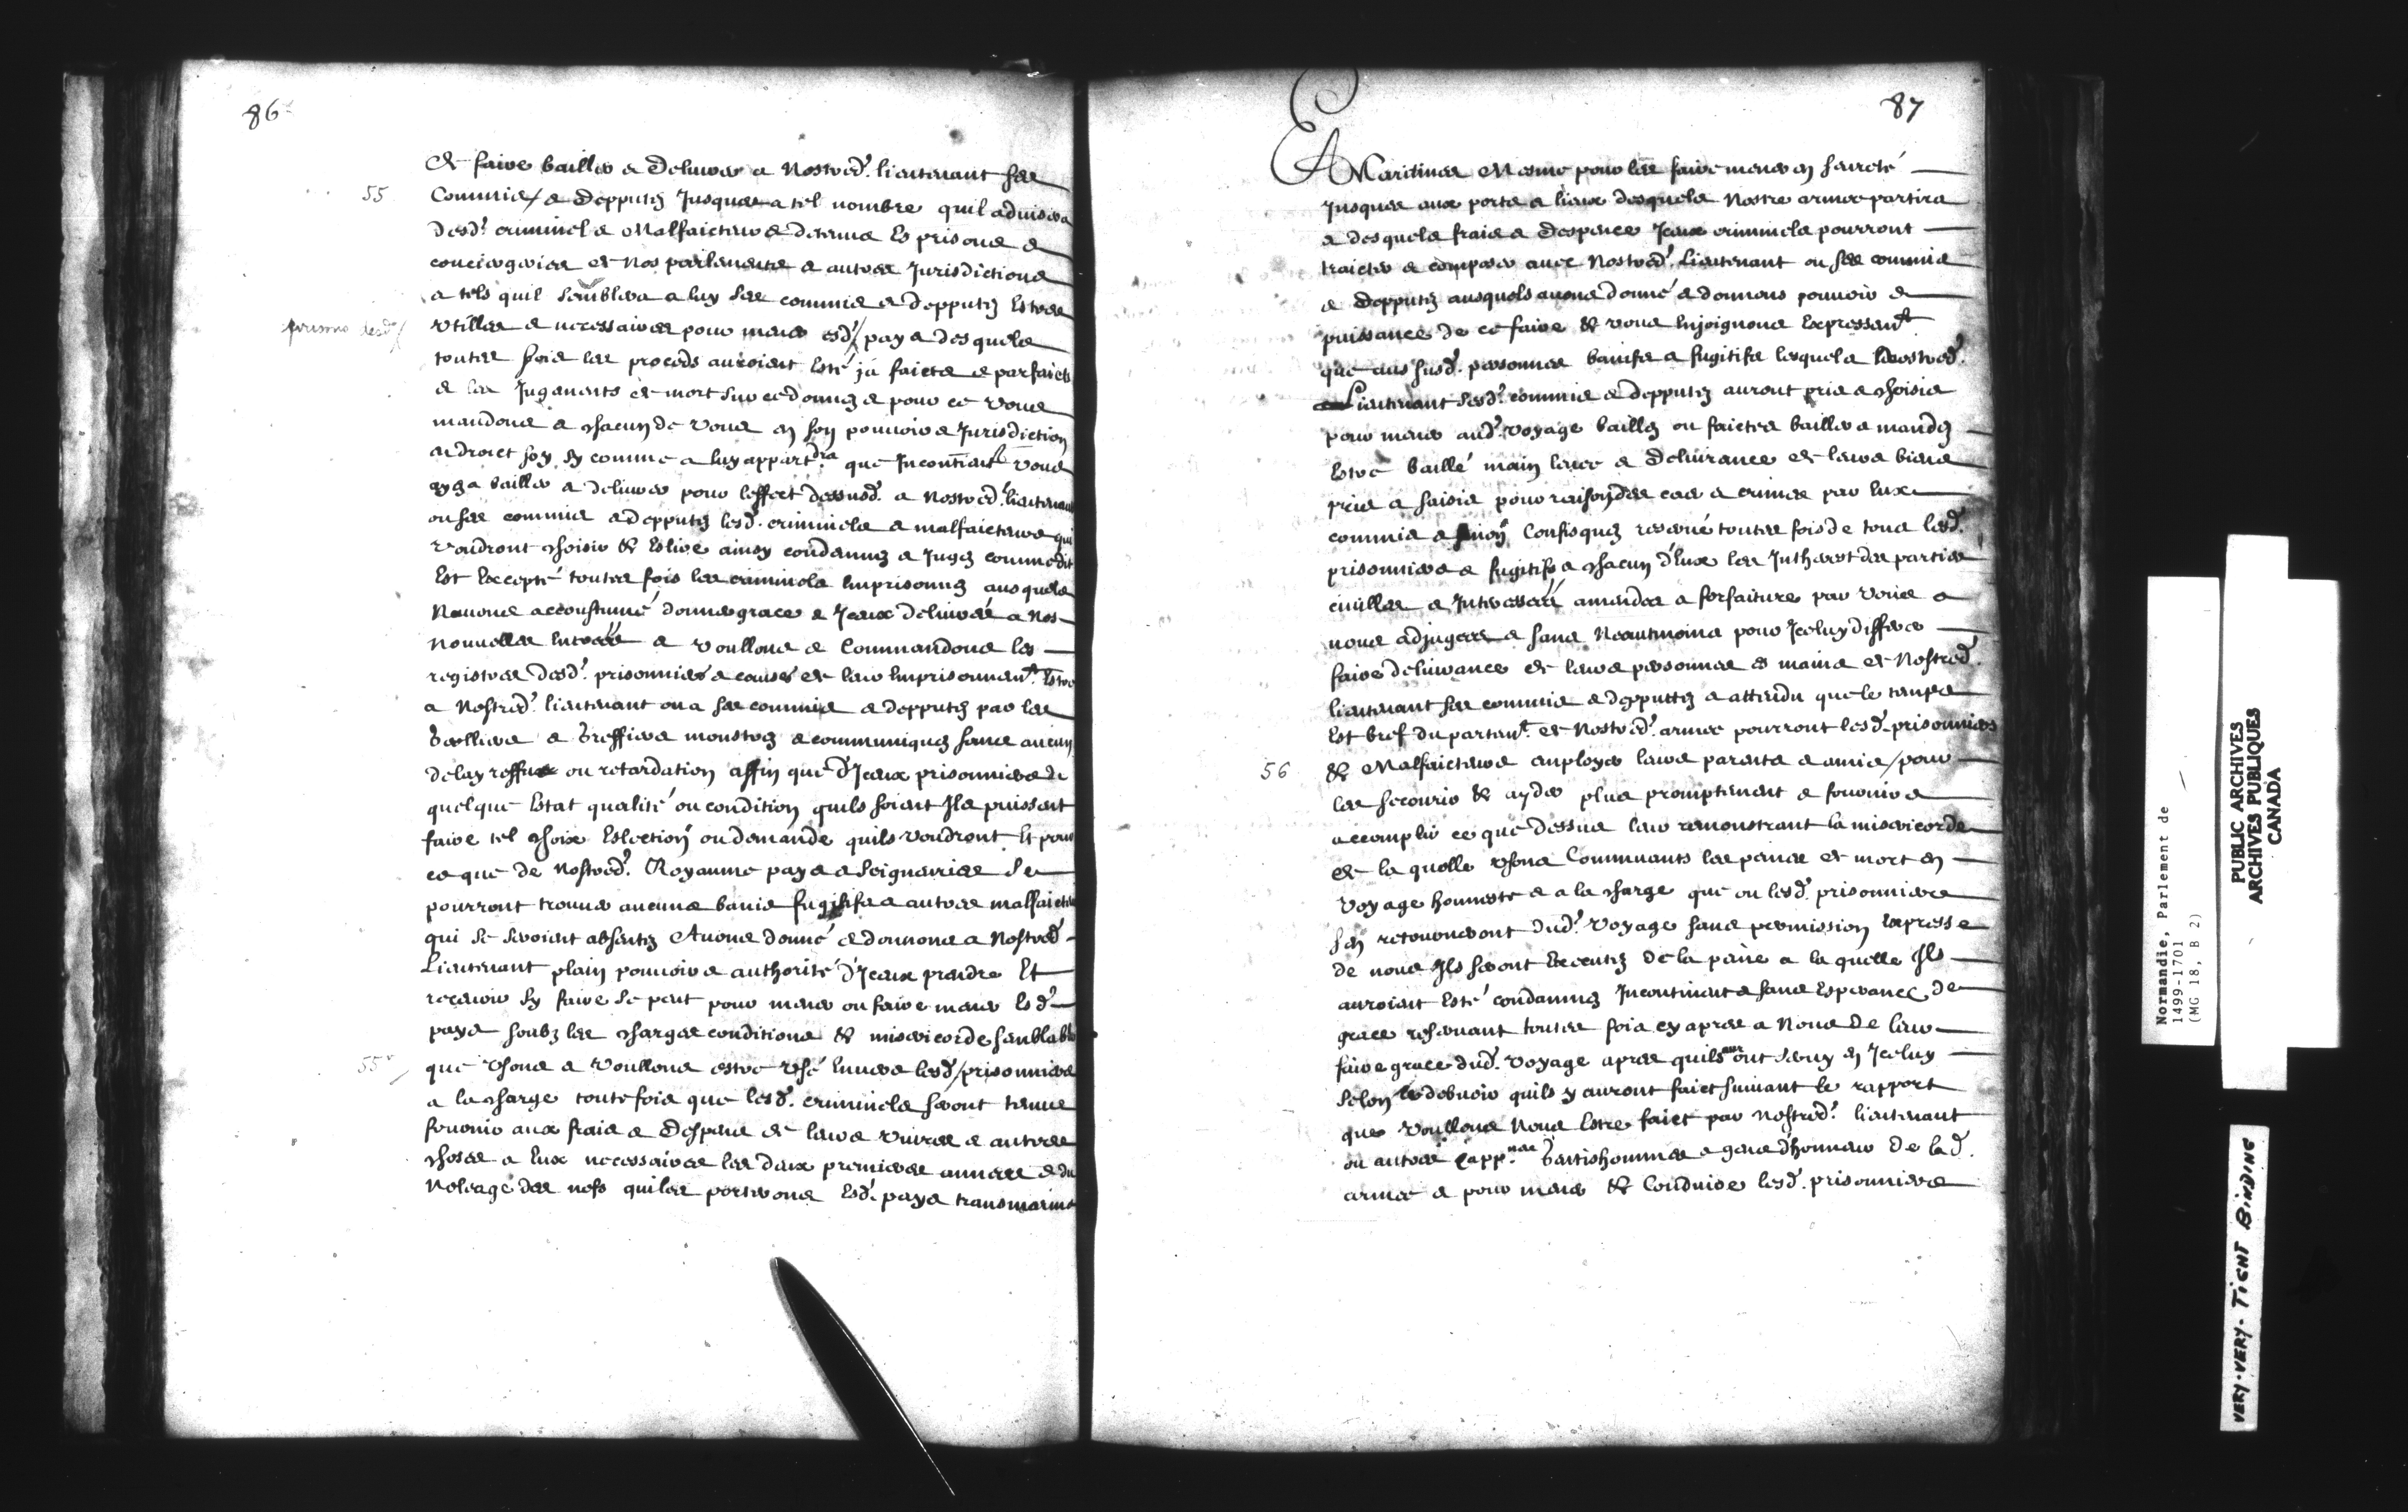 86
Et faire bailler & deliurer a Nostred. lieutenant ses
55
Commis / & depputez Jusques a tel nombre quil aduisera
desd. criminels & Malfaicteurs detenus Es prisons &
conciergeries de Nos parlements & autres Jurisdictions
& tels quil semblera a luy ses commis & depputez Estre
prisons desd /
vtilles & necessaires pour mener esd / pays desquels
toutes fois les proceds auroient Esté ja faicts & parfaicts
& les Jugements de mort sur ce donnez & pour ce vous
mandons & chacun de vous en son pouuoir & Jurisdiction
endroict soy sy comme a luy appartdra que Incontinent vous
ayez a bailler & deliurer pour leffect dessusd. a Nostred. lieutenant
ou ses commis & depputez lesd. criminels & malfaicteurs qui
voudront choisir & Eslire ainsy condamnez & Jugez comme dit
Est Excepté toutes fois les criminels Emprisonnez ausquels
Nauons accoustumé donner grace & Jceux deliurer a Nos
nouuelles Entrées & voullons & Commandons les
registres desd. prisonniers & causes de leur Emprisonnemt. Estre
a Nostred. lieutenant ou a ses commis & depputez par les
Geolliers & Greffiers monstrez & communiquez sans aucun
delay reffus ou retardation affin que d'Jceux prisonniers de
quelque Estat qualité ou condition quils soient Ils puissent
faire tel choix Eslection ou demande quils voudront Et pour
ce que de Nostred. Royaume pays & seigneuries se
pourront trouuer aucuns banis fugitifs & autres malfaicteurs
qui se seroient absentez Auons donné & donnons a Nostred
Lieutenant plain pouuoir & authorité d'Jceux prendre Et
receuoir sy faire se peut pour mener ou faire mener Esd
pays soubz les charges conditions & misericorde semblable
55v
que vsons & voullons estre vsé Enuers lesd / prisonniers
a la charge toutefois que lesd. criminels seront tenus
fournir aux frais & Despens de leurs viures & autres
choses a Eux necessaires les deux premieres années & du
Noleage des nefs qui les porterons Esd. pays transmarins
87
& Maritimes Mesme pour les faire mener en seureté
Jusques aux ports & lieux desquels Nostre armée partira
& desquels frais & Despence Jceux criminels pourront
traicter & composer auec Nostred. Lieutenant ou ses commis
& Depputez ausquels auons donné & donnons pouuoir &
puissance de ce faire & vous Enjoignons Expressemt
que aus susd. personnes banifs & fugitifs lesquels Nostred.
Lieutenant sesd. commis & depputez auront pris & choisis
pour mener aud. voyage baillez ou faictes bailler & mandez
Estre baillé main leuée & Deliurance de leurs biens
pris & saisis pour raison des cas & crimes par Eux
commis & sinon Confisquez reserué toutes fois de tous lesd.
prisonniers & fugitifs & chacun d'Eux les Intherest des parties
ciuilles & Interessées amendes & forfaiture par vous a
nous adjugées & sans Neantmoins pour Jceluy differer
faire deliurance de leurs personnes es mains de Nostred.
lieutenant ses commis & depputtez & attendu que le temps
Est bref du partemt. de Nostred. armée pourront lesd. prisonniers
56
& Malfaicteurs employer leurs parents & amis / pour
les secourir & ayder plus promptement & fournir &
accomplir ce que dessus leur remonstrant la misericorde
de la quelle vsons Commuants les peines de mort en
voyage honneste & a la charge que ou lesd. prisonniers
s'en retourneront dud. voyage sans permission Expresse
de nous Ils seront Executez de la peine a la quelle Ils
auroient Esté condamnez Incontinent & sans Esperance de
grace reseruant toutes fois cy apres a Nous de leur
faire grace dud. voyage apres quils auront seruy en Jceluy
selon le debuoir quils y auront faict suiuant le rapport
que voullons Nous Estre faict par nostred. lieutenant
ou autres Cappnes Gentishommes & gens d'honneur De lad.
armée & pour mener & Conduire lesd. prisonniers
Normandie, Parlement de
1499-1701
(MG 18, B 2)
PUBLIC ARCHIVES
ARCHIVES PUBLIQUES
CANADA
VERY-VERY-TIGHT BINDING